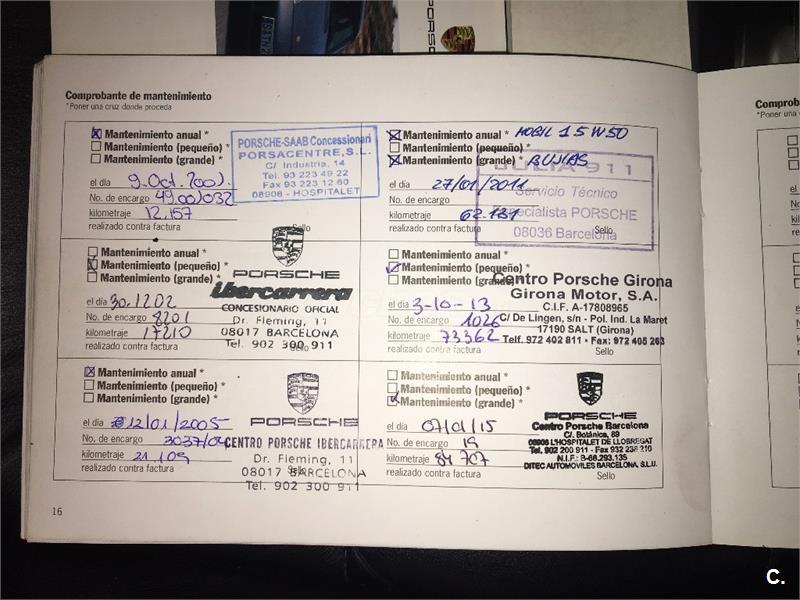 PORSCHE
Comprobante de mantenimiento
*Poner una cruz donde proceda
Mantenimiento anual *
Mantenimiento (pequeño) *
Mantenimiento (grande) *
el día 9.Oct.2001.
No. de encargo 4900/032
kilometraje 12.157
realizado contra factura
Sello
PORSCHE-SAAB Concessionari
PORSACENTRE, S.L.
C/ Industria, 14
Tel. 93 223 49 22
Fax 93 223 12 60
08908 - HOSPITALET
Mantenimiento anual *
Mantenimiento (pequeño) *
Mantenimiento (grande) *
el día 30.12 02
No. de encargo 8201
kilometraje 17210
realizado contra factura
Sello
PORSCHE
ibercarrera
CONCESIONARIO OFICIAL
Dr. Fleming, 11
08017 BARCELONA
Tel. 902 300 911
Mantenimiento anual *
Mantenimiento (pequeño) *
Mantenimiento (grande) *
el día 12/01/2005
No. de encargo 3037/04
kilometraje 21.109
realizado contra factura
Sello
PORSCHE
CENTRO PORSCHE IBERCARRERA
Dr. Fleming, 11
08017 BARCELONA
Tel. 902 300 911
16
Mantenimiento anual * MOBIL 1 5W50
Mantenimiento (pequeño) *
Mantenimiento (grande) * BUJIAS
el día 27/01/2011
No. de encargo
kilometraje 62.181
realizado contra factura
Sello
911
Servicio Técnico
Especialista PORSCHE
08036 Barcelona
Mantenimiento anual *
Mantenimiento (pequeño) *
Mantenimiento (grande) *
el día 3-10-13
No. de encargo 1026
kilometraje 73362
realizado contra factura
Sello
Centro Porsche Girona
Girona Motor, S.A.
C.I.F. A-17808965
C/ De Lingen, s/n - Pol. Ind. La Maret
17190 SALT (Girona)
Telf. 972 402 811 • Fax: 972 405 263
Mantenimiento anual *
Mantenimiento (pequeño) *
Mantenimiento (grande) *
el día 07/01/15
No. de encargo 19
kilometraje 84 707
realizado contra factura
Sello
PORSCHE
Centro Porsche Barcelona
C/. Botánica, 89
08908 L'HOSPITALET DE LLOBREGAT
Tel. 902 200 911 - Fax 932 238 210
N.I.F.: B-68.293.135
DITEC AUTOMOVILES BARCELONA, S.L.U.
Comprob
*Poner una
el día
No. de
kilome
realiza
C.